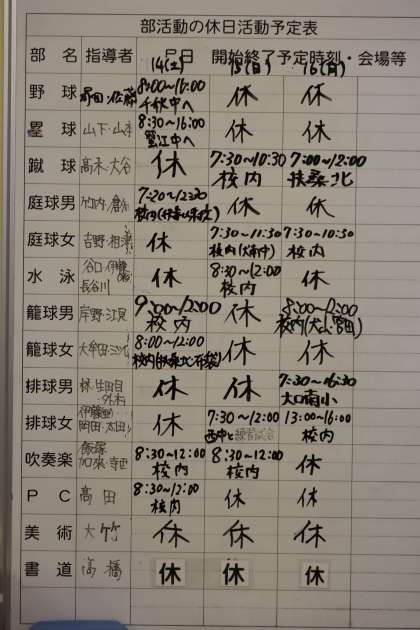 部活動の休日活動予定表
部 名 指導者 月日 開始終了予定時刻・会場等
14(土) 15(日) 16(月)
野 球 ・佐藤 8:00〜 休 休
千秋中へ
塁 球 山下・山本 8:30〜16:00 休 休
江中へ
蹴 球 高木・大谷 休 7:30〜10:30 7:00〜12:00
校内 扶桑北
庭球男 竹内・倉知 7:20〜12:30 休 休
校内
庭球女 吉野・相 休 7:30〜11:30 7:30〜10:30
校内 校内
水 泳 谷口・伊藤 休 8:30〜12:00 休
長谷川 校内
籠球男 岸野・江見 9:00〜12:00 休 8:00〜12:00
校内 校内
籠球女 大牟田 8:00〜12:00 休 休
校内
排球男 林・生田目 休 休 7:30〜16:30
大口南小
排球女 伊藤 休 7:30〜12:00 13:00〜16:00
岡田・太田 西中と練習試合 校内
吹奏楽 飯塚 8:30〜12:00 8:30〜12:00 休
加来・寺西 校内 校内
P C 高田 8:30〜12:00 休 休
校内
美 術 大竹 休 休 休
書 道 高橋 休 休 休